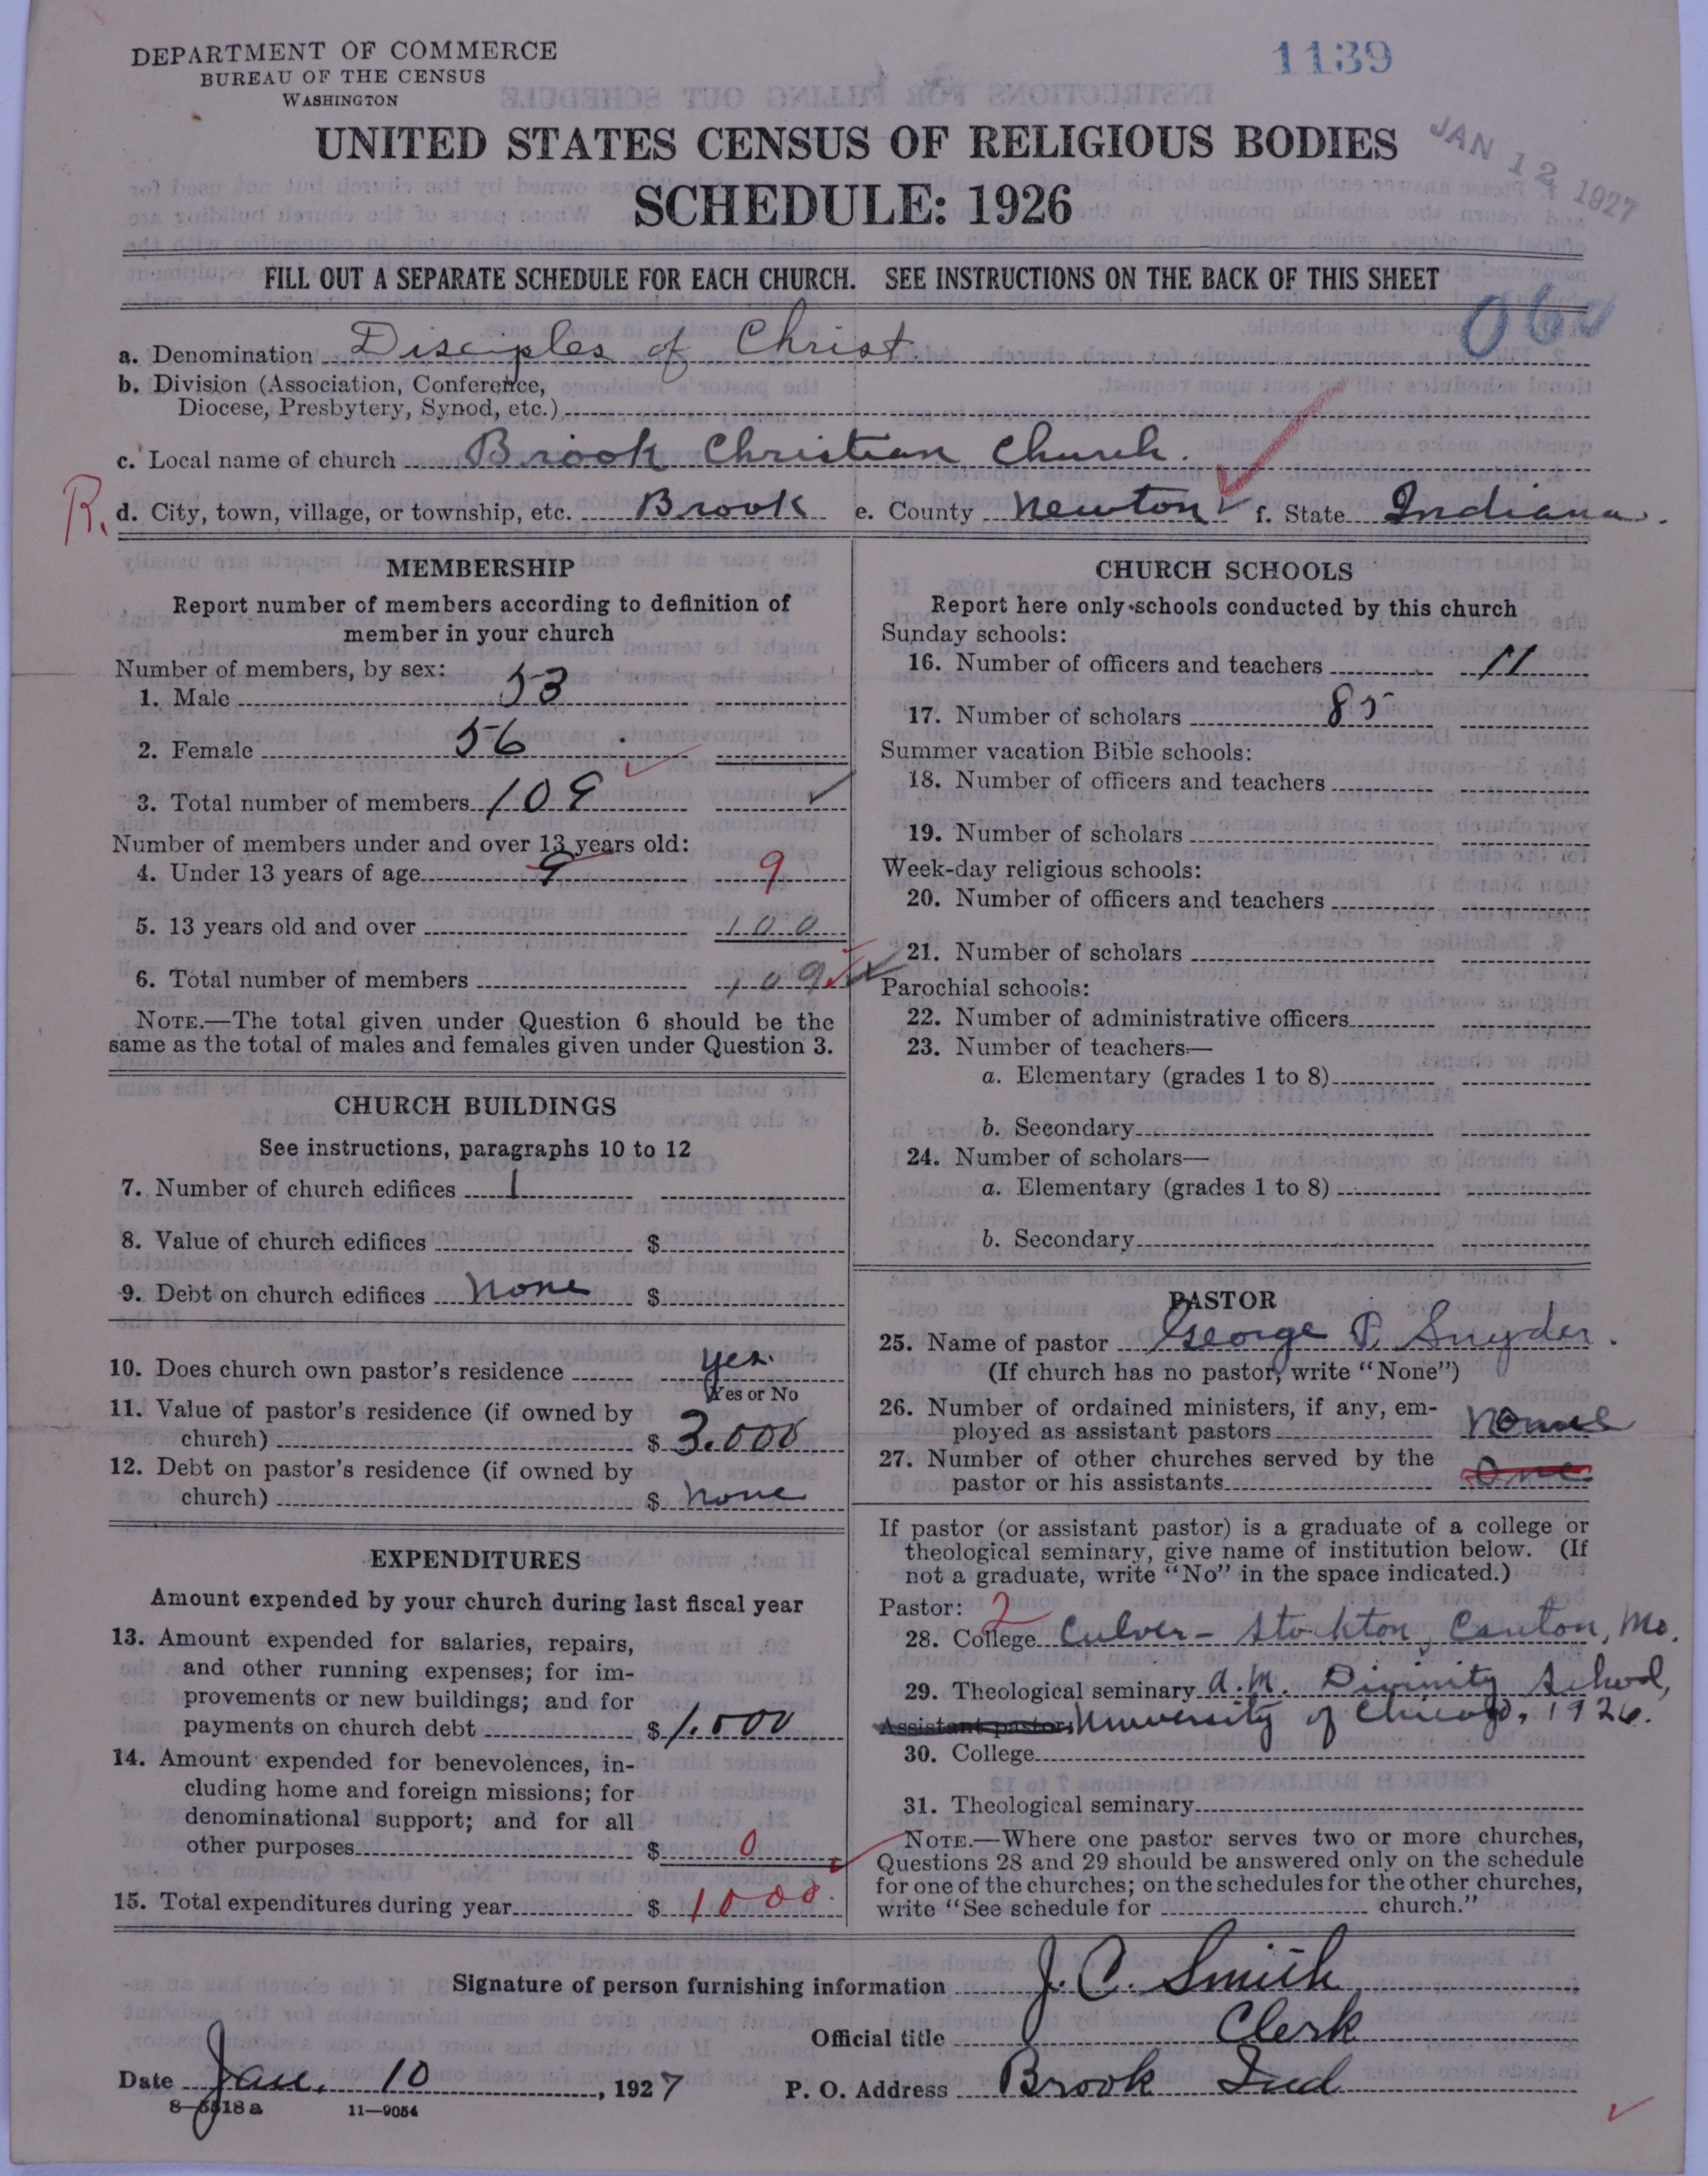 DEPARTMENT OF COMMERCE
BUREAU OF THE CENSUS
WASHINGTON
1139
UNITED STATES CENSUS OF RELIGIOUS BODIES
JAN 12 1927
SCHEDULE: 1926
FILL OUT A SEPARATE SCHEDULE FOR EACH CHURCH. SEE INSTRUCTIONS ON THE BACK OF THIS SHEET
060
a. Denomination Disciples of Christ
b. Division (Association, Conference,
Diocese, Presbytery, Synod, etc.)
c. Local name of church Brook Christian Church.
R. d. City, town, village, or township, etc. Brook e. County Newton f. State Indiana.
MEMBERSHIP
Report number of members according to definition of
member in your church
Number of members, by sex:
1. Male 53
2. Female 56
3. Total number of members 109
Number of members under and over 13 years old:
4. Under 13 years of age 9 9
5. 13 years old and over 100
6. Total number of members 109
NOTE.—The total given under Question 6 should be the
same as the total of males and females given under Question 3.
CHURCH BUILDINGS
See instructions, paragraphs 10 to 12
7. Number of church edifices 1
8. Value of church edifices $
9. Debt on church edifices None $
10. Does church own pastor's residence yes.
Yes or No
11. Value of pastor's residence (if owned by
church) $ 3.000
12. Debt on pastor's residence (if owned by
church) $ None
EXPENDITURES
Amount expended by your church during last fiscal year
13. Amount expended for salaries, repairs,
and other running expenses; for im-
provements or new buildings; and for
payments on church debt $ 1.000
14. Amount expended for benevolences, in-
cluding home and foreign missions; for
denominational support; and for all
other purposes $ 0
15. Total expenditures during year $ 1000.
CHURCH SCHOOLS
Report here only schools conducted by this church
Sunday schools:
16. Number of officers and teachers 11
17. Number of scholars 85
Summer vacation Bible schools:
18. Number of officers and teachers
19. Number of scholars
Week-day religious schools:
20. Number of officers and teachers
21. Number of scholars
Parochial schools:
22. Number of administrative officers
23. Number of teachers—
a. Elementary (grades 1 to 8)
b. Secondary
24. Number of scholars—
a. Elementary (grades 1 to 8)
b. Secondary
PASTOR
25. Name of pastor George P. Snyder.
(If church has no pastor, write "None")
26. Number of ordained ministers, if any, em-
ployed as assistant pastors None
27. Number of other churches served by the
pastor or his assistants One
If pastor (or assistant pastor) is a graduate of a college or
theological seminary, give name of institution below. (If
not a graduate, write "No" in the space indicated.)
Pastor: 2
28. College Culver-Stockton, Canton, Mo.
29. Theological seminary A.M. Divinity School,
Assistant pastor: University of Chicago, 1926.
30. College
31. Theological seminary
NOTE.—Where one pastor serves two or more churches,
Questions 28 and 29 should be answered only on the schedule
for one of the churches; on the schedules for the other churches,
write "See schedule for church."
Signature of person furnishing information J. C. Smith
Official title Clerk
Date Jan. 10, 1927 P. O. Address Brook Ind
8—5518a 11—9054